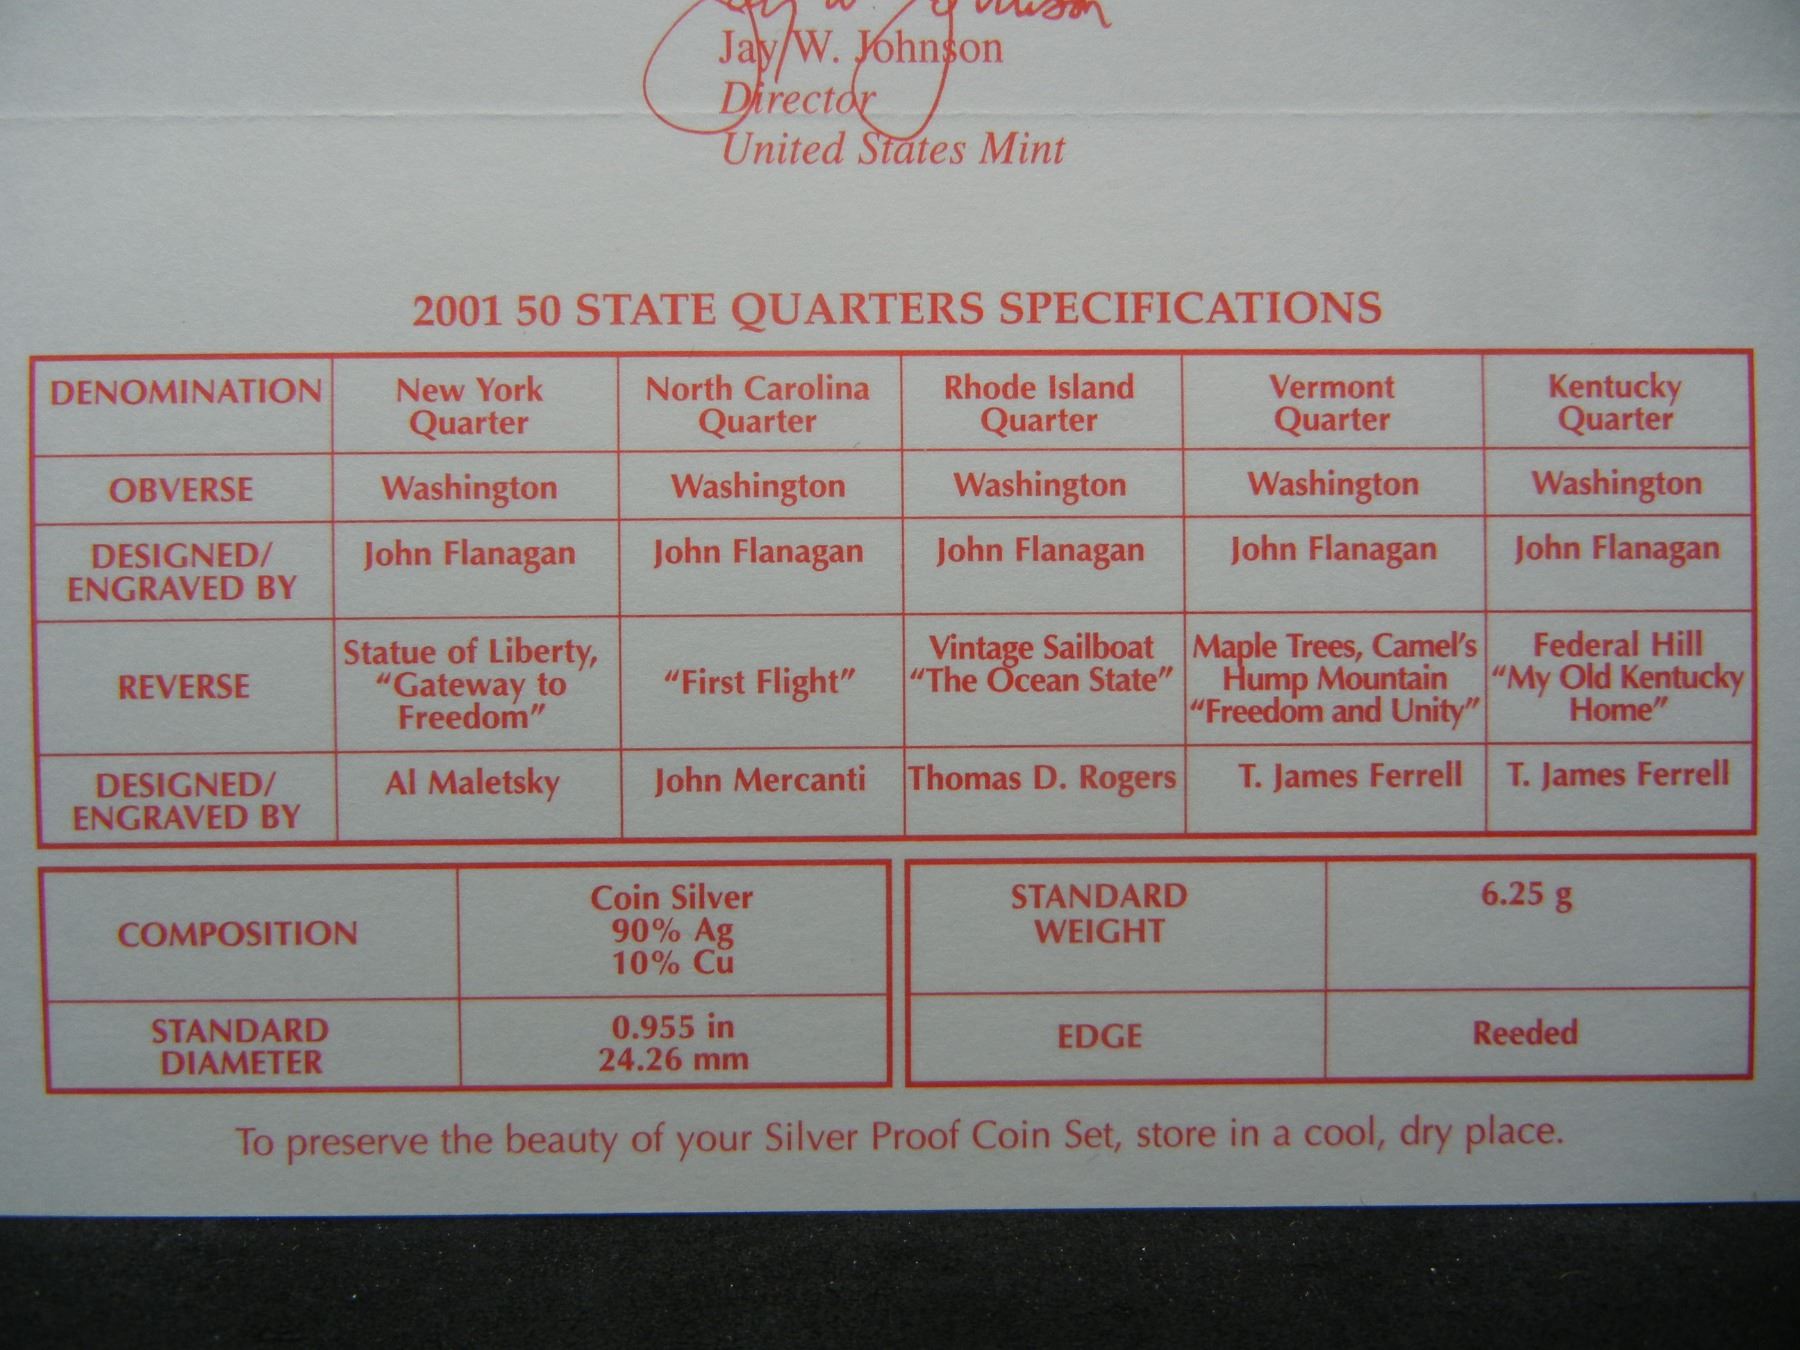 Jay W. Johnson
Director
United States Mint
2001 50 STATE QUARTERS SPECIFICATIONS
DENOMINATION
New York
Quarter
North Carolina
Quarter
Rhode Island
Quarter
Vermont
Quarter
Kentucky
Quarter
OBVERSE
Washington
Washington
Washington
Washington
Washington
DESIGNED/
ENGRAVED BY
John Flanagan
John Flanagan
John Flanagan
John Flanagan
John Flanagan
REVERSE
Statue of Liberty,
“Gateway to
Freedom”
“First Flight”
Vintage Sailboat
“The Ocean State”
Maple Trees, Camel’s
Hump Mountain
“Freedom and Unity”
Federal Hill
“My Old Kentucky
Home”
DESIGNED/
ENGRAVED BY
Al Maletsky
John Mercanti
Thomas D. Rogers
T. James Ferrell
T. James Ferrell
COMPOSITION
Coin Silver
90% Ag
10% Cu
STANDARD
DIAMETER
0.955 in
24.26 mm
STANDARD
WEIGHT
6.25 g
EDGE
Reeded
To preserve the beauty of your Silver Proof Coin Set, store in a cool, dry place.